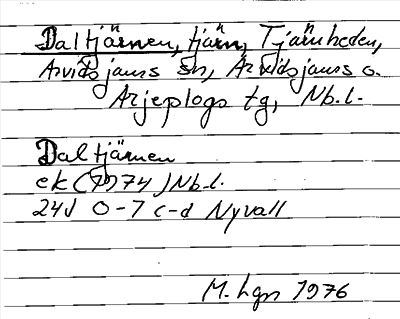 Daltjärnen, tjärn, Tjärnheden,
Arvidsjaurs sn, Arvidsjaurs o.
Arjeplogs tg, Nb.l.
Daltjärnen
ek (1974) Nb.l.
24J 0-7 c-d Nyvall
M. Lgn 1976